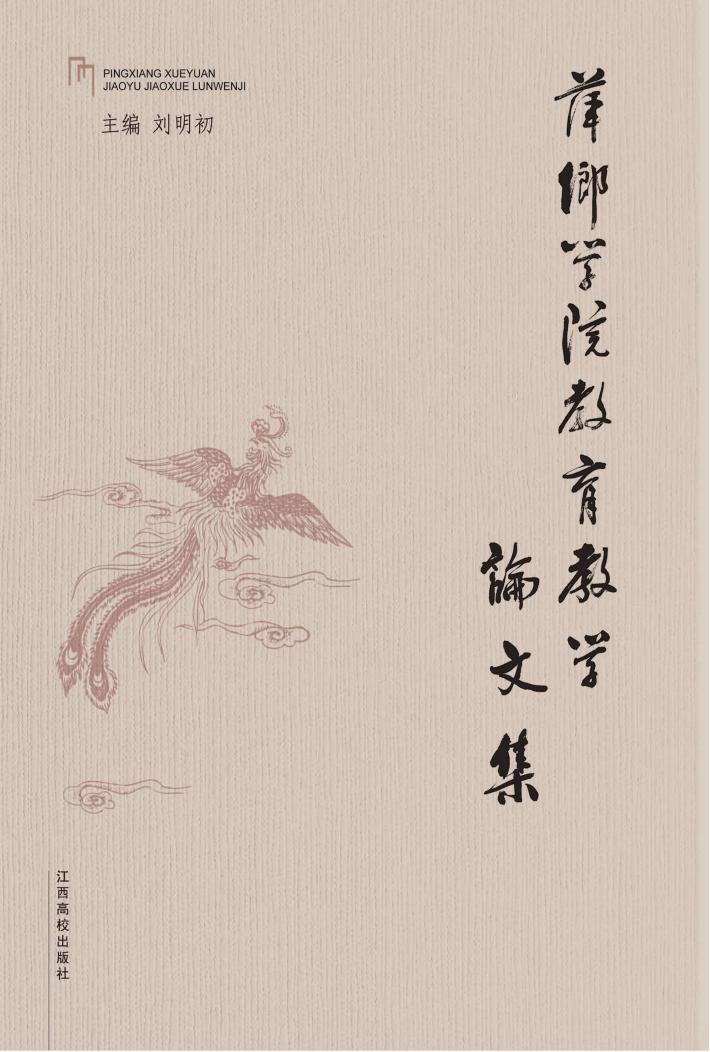 PINGXIANG XUEYUAN
JIAOYU JIAOXUE LUNWENJI
主编 刘明初
萍鄉学院教育教学
論文集
江西高校出版社